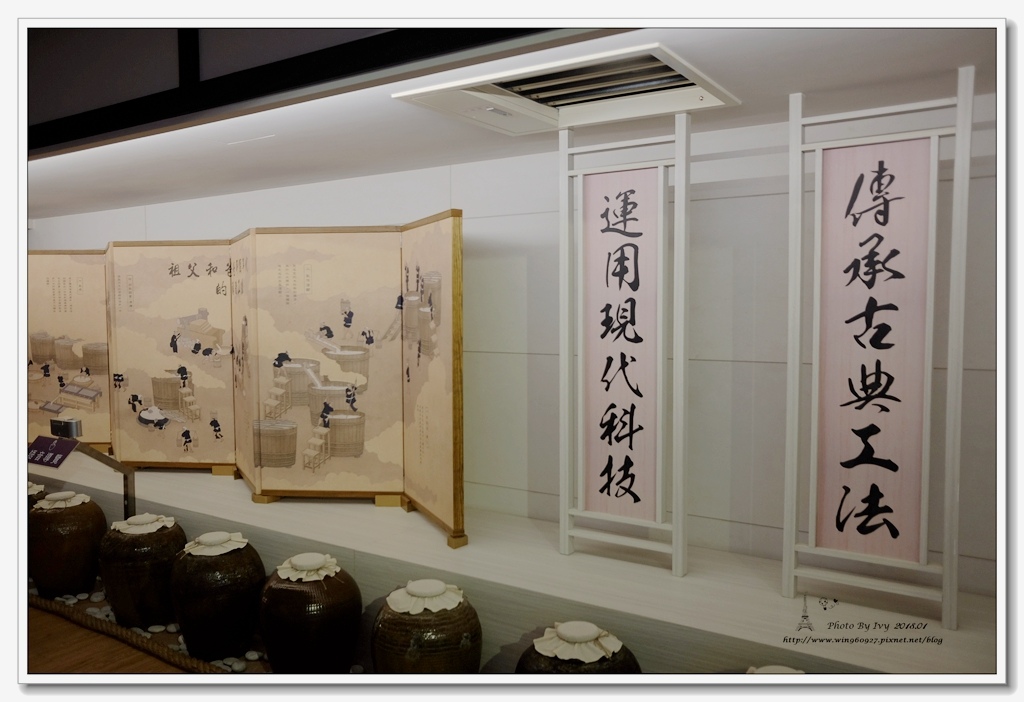 傳承古典工法
運用現代科技
祖父和爸
的
語音導覽
Photo By Ivy 2018.01
http://www.win960927.pixnet.net/blog